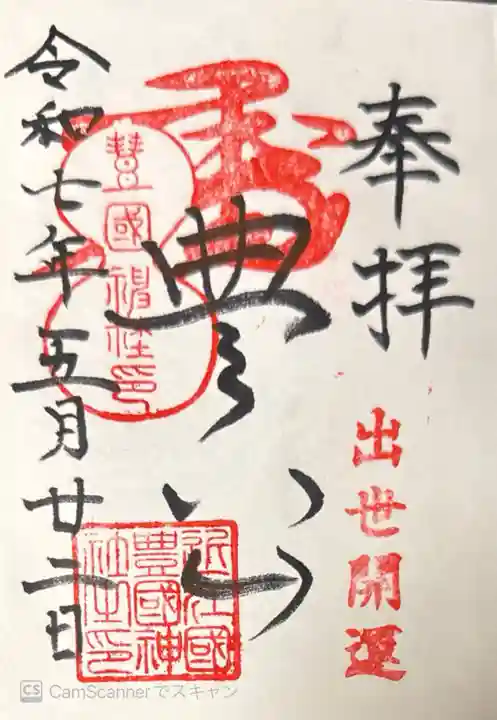 奉拝
出世開運
豊
近江國
豊國神
社之印
令和七年五月廿二日
CS CamScannerでスキャン